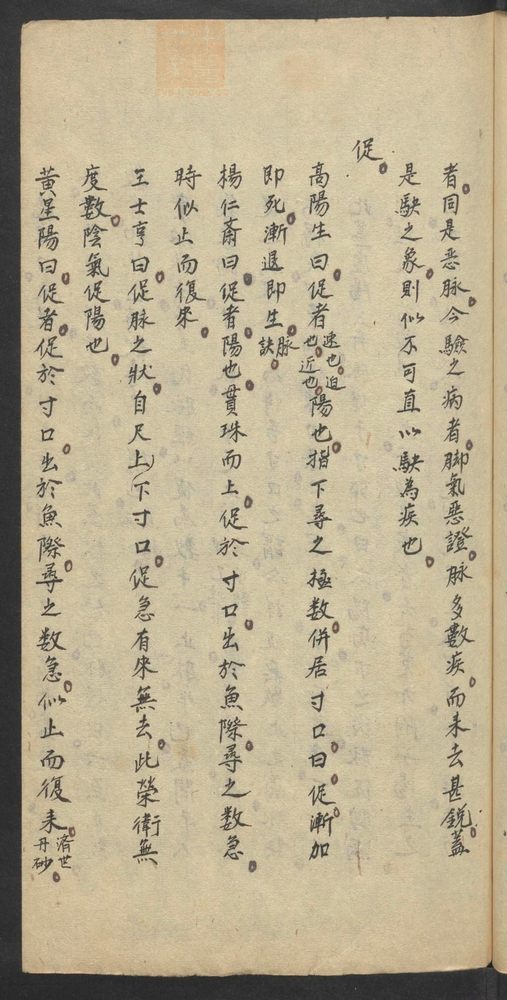 者同是恶脉今驗之病者脚氣恶證脉多數疾而来去甚銳蓋
是駃之象則似不可直以駃為疾也
促
髙陽生曰促者速也迫也近也陽也指下尋之極数併居寸口曰促漸加
即死漸退即生脉訣
楊仁斎曰促者陽也貫珠而上促於寸口出於魚際尋之数急
時似止而復来
王士亨曰促脉之狀自尺上下寸口促急有来無去此榮衛無
度數陰氣促陽也
黃星陽曰促者促於寸口出於魚際尋之数急似止而復来濟世丹砂